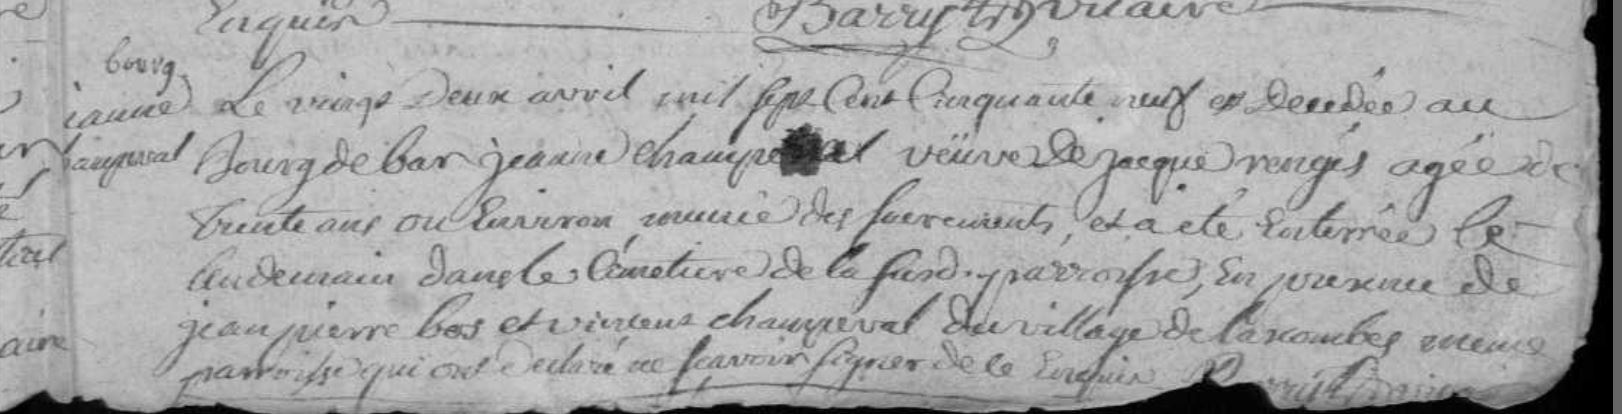 Enquis Barry ptre vicaire
bourg
jeanne
champeval
Le vingt Deux avril mil sept Cent Cinquante neuf est Decedée au
Bourg de bar jeanne champeval veüve De jacque vergés agée de
trente ans ou Environ, munie des sacrements, et a eté Enterrée le
lendemain dans le Cimetiere de la susd. parroisse, En presence de
jean pierre bos et vincent champeval du village de lascombes meme
parroisse qui ont Declaré ne scavoir signer de ce Enquis